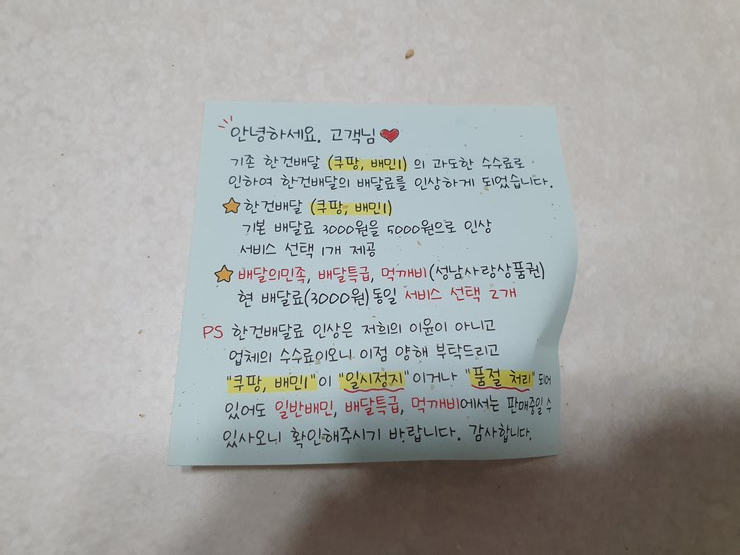 안녕하세요. 고객님
기존 한건배달 (쿠팡, 배민1) 의 과도한 수수료로
인하여 한건배달의 배달료를 인상하게 되었습니다.
한건배달 (쿠팡, 배민1)
기본 배달료 3000원을 5000원으로 인상
서비스 선택 1개 제공
배달의민족, 배달특급, 먹깨비(성남사랑상품권)
현 배달료(3000원) 동일 서비스 선택 2개
PS 한건배달료 인상은 저희의 이윤이 아니고
업체의 수수료이오니 이점 양해 부탁드리고
"쿠팡, 배민1"이 "일시정지"이거나 "품절 처리"되어
있어도 일반배민, 배달특급, 먹깨비에서는 판매중일 수
있사오니 확인해주시기 바랍니다. 감사합니다.